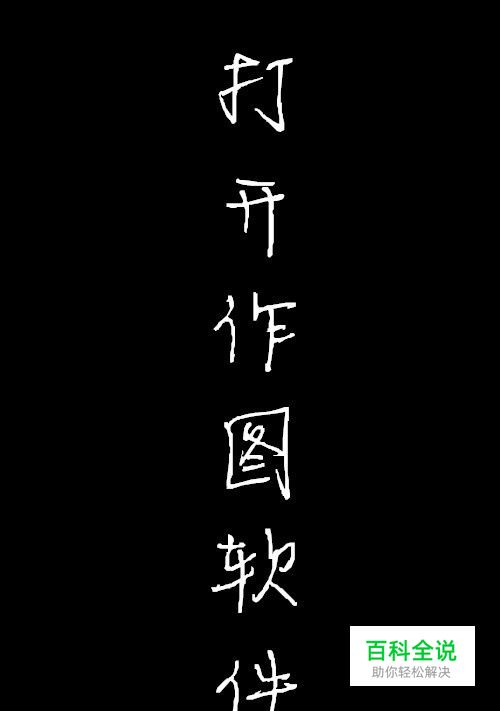 打开作图软件
百科全说
助你轻松解决